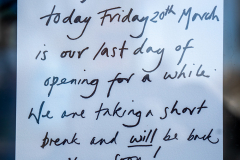 today Friday 20th March
is our last day of
opening for a while.
We are taking a short
break and will be back
soon!